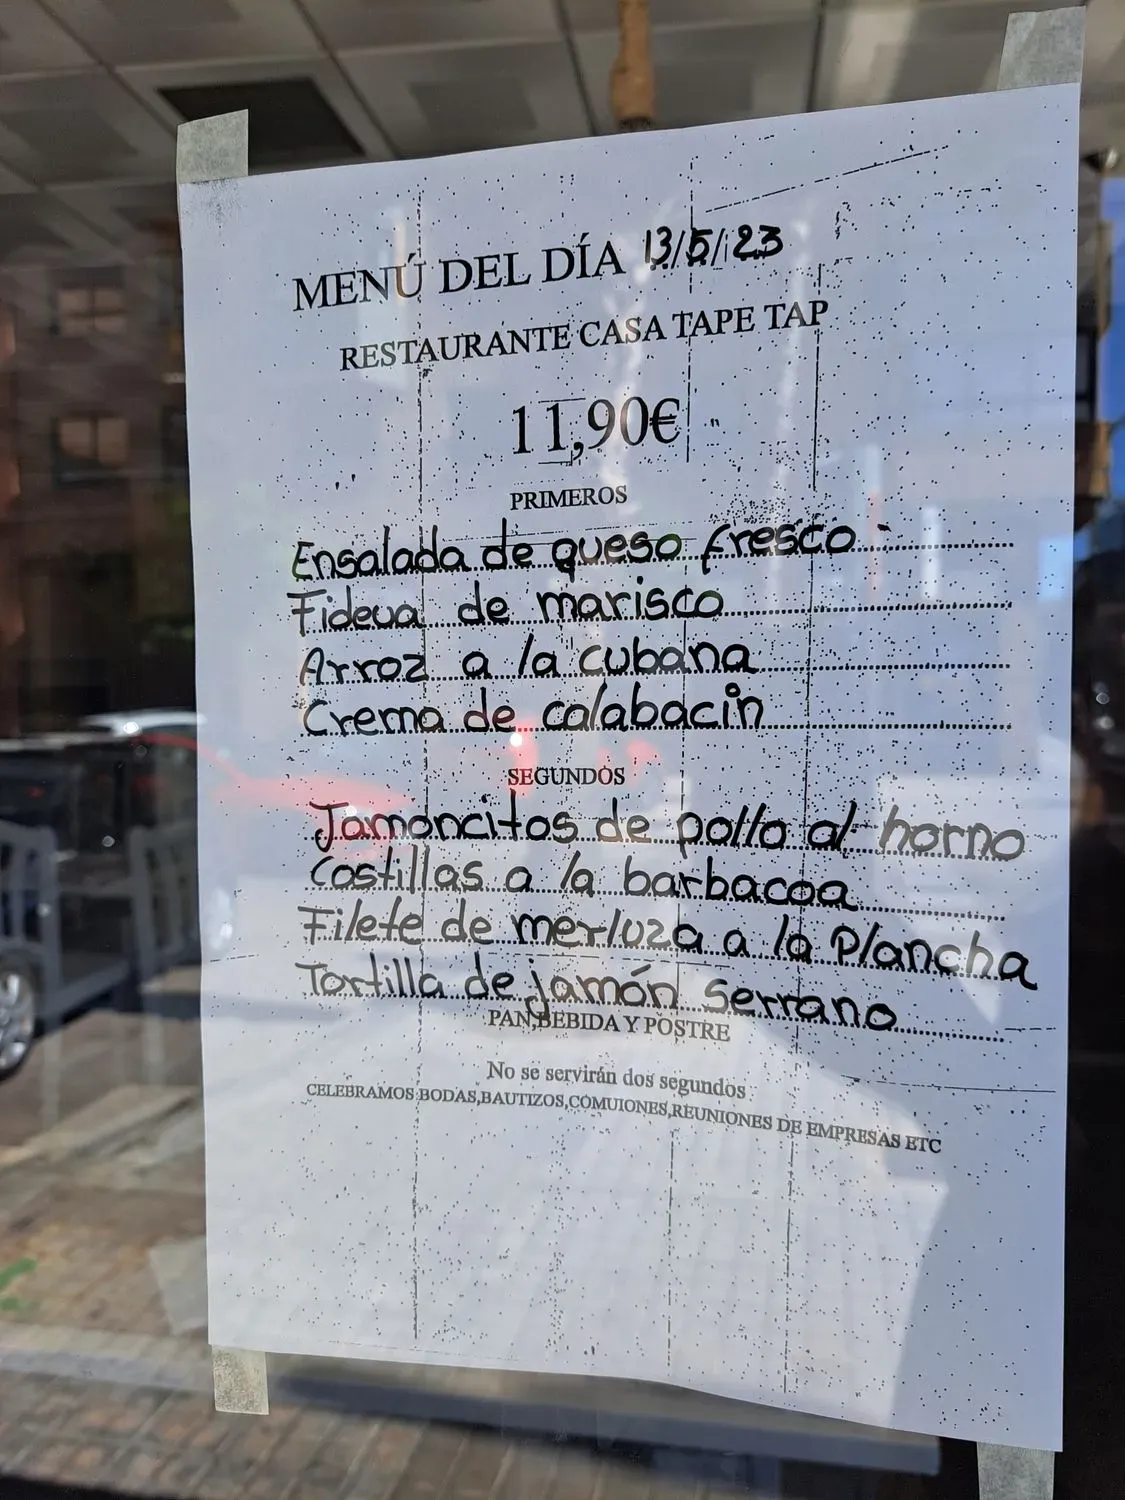 MENÚ DEL DÍA 13/5/23
RESTAURANTE CASA TAPE TAP
11,90€
PRIMEROS
Ensalada de queso fresco
Fideua de marisco
Arroz a la cubana
Crema de calabacin
SEGUNDOS
Jamoncitos de pollo al horno
Costillas a la barbacoa
Filete de merluza a la Plancha
Tortilla de jamón serrano
PAN,BEBIDA Y POSTRE
No se servirán dos segundos
CELEBRAMOS BODAS,BAUTIZOS,COMUIONES,REUNIONES DE EMPRESAS ETC